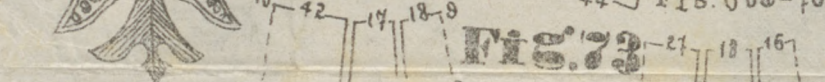 42 17 18 9
Fig. 73 21 18 16